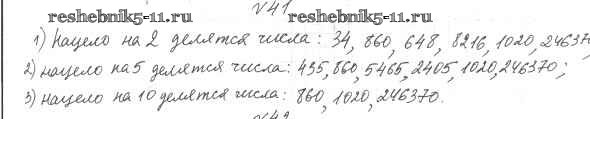 №41
reshebnik5-11.ru reshebnik5-11.ru
1) Нацело на 2 делятся числа: 34, 860, 648, 8216, 1020, 246370
2) нацело на 5 делятся числа: 435, 860, 5465, 2405, 1020, 246370;
3) нацело на 10 делятся числа: 860, 1020, 246370.